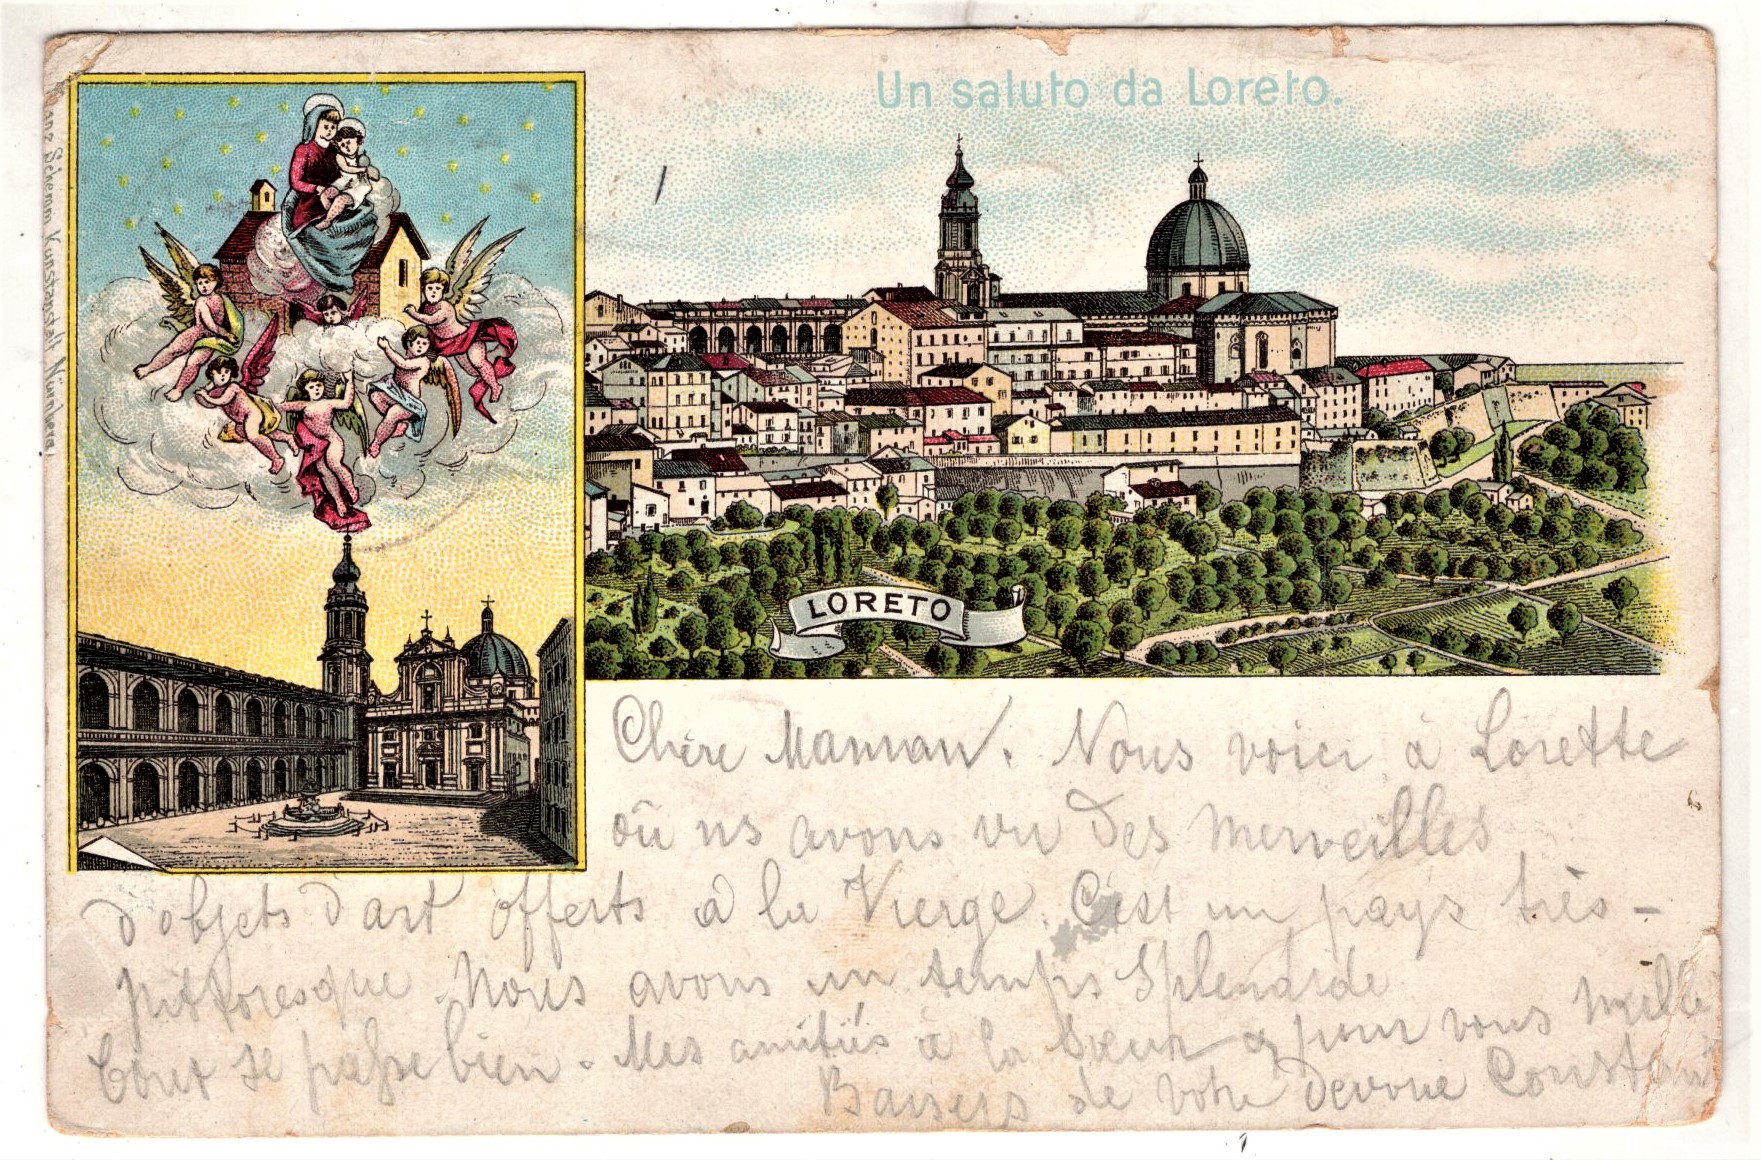 Un saluto da Loreto.
Schemm Kunstanstalt Nürnberg
LORETO
Chère Maman. Nous voici à Lorette
où ns avons vu des merveilles
d'objets d'art offerts à la Vierge. C'est un pays très-
pittoresque. Nous avons un temps splendide
tout se passe bien. Mes amitiés à la Sœur & pour vous mille
Baisers de votre dévoué Constant